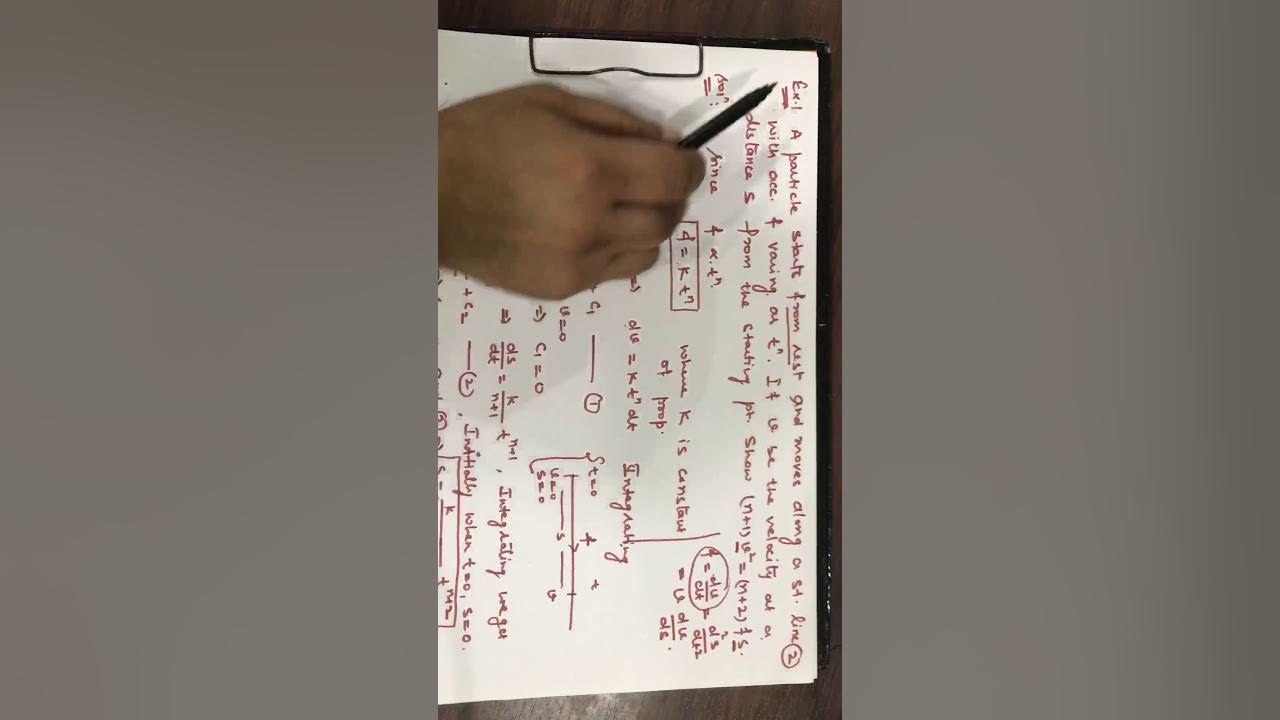 Ex.1 A particle starts from rest and moves along a st. line ②
with acc. f varing as tⁿ. If v be the velocity at a
distance s from the starting pt. Show (n+1)v² = (n+2) f s.
Solⁿ: since f α tⁿ.
f = k tⁿ where k is constant
of prop.
f = dv/dt = d²s/dt²
= v dv/ds.
⇒ dv = k tⁿ dt Integrating
+ c₁ —— ①
t=0
v=0
s=0
f t
s v
v=0
⇒ c₁ = 0
⇒ ds/dt = k/n+1 tⁿ⁺¹, Integrating we get
+ c₂ —— ②, Initially when t=0, s=0.
s = k tⁿ⁺²